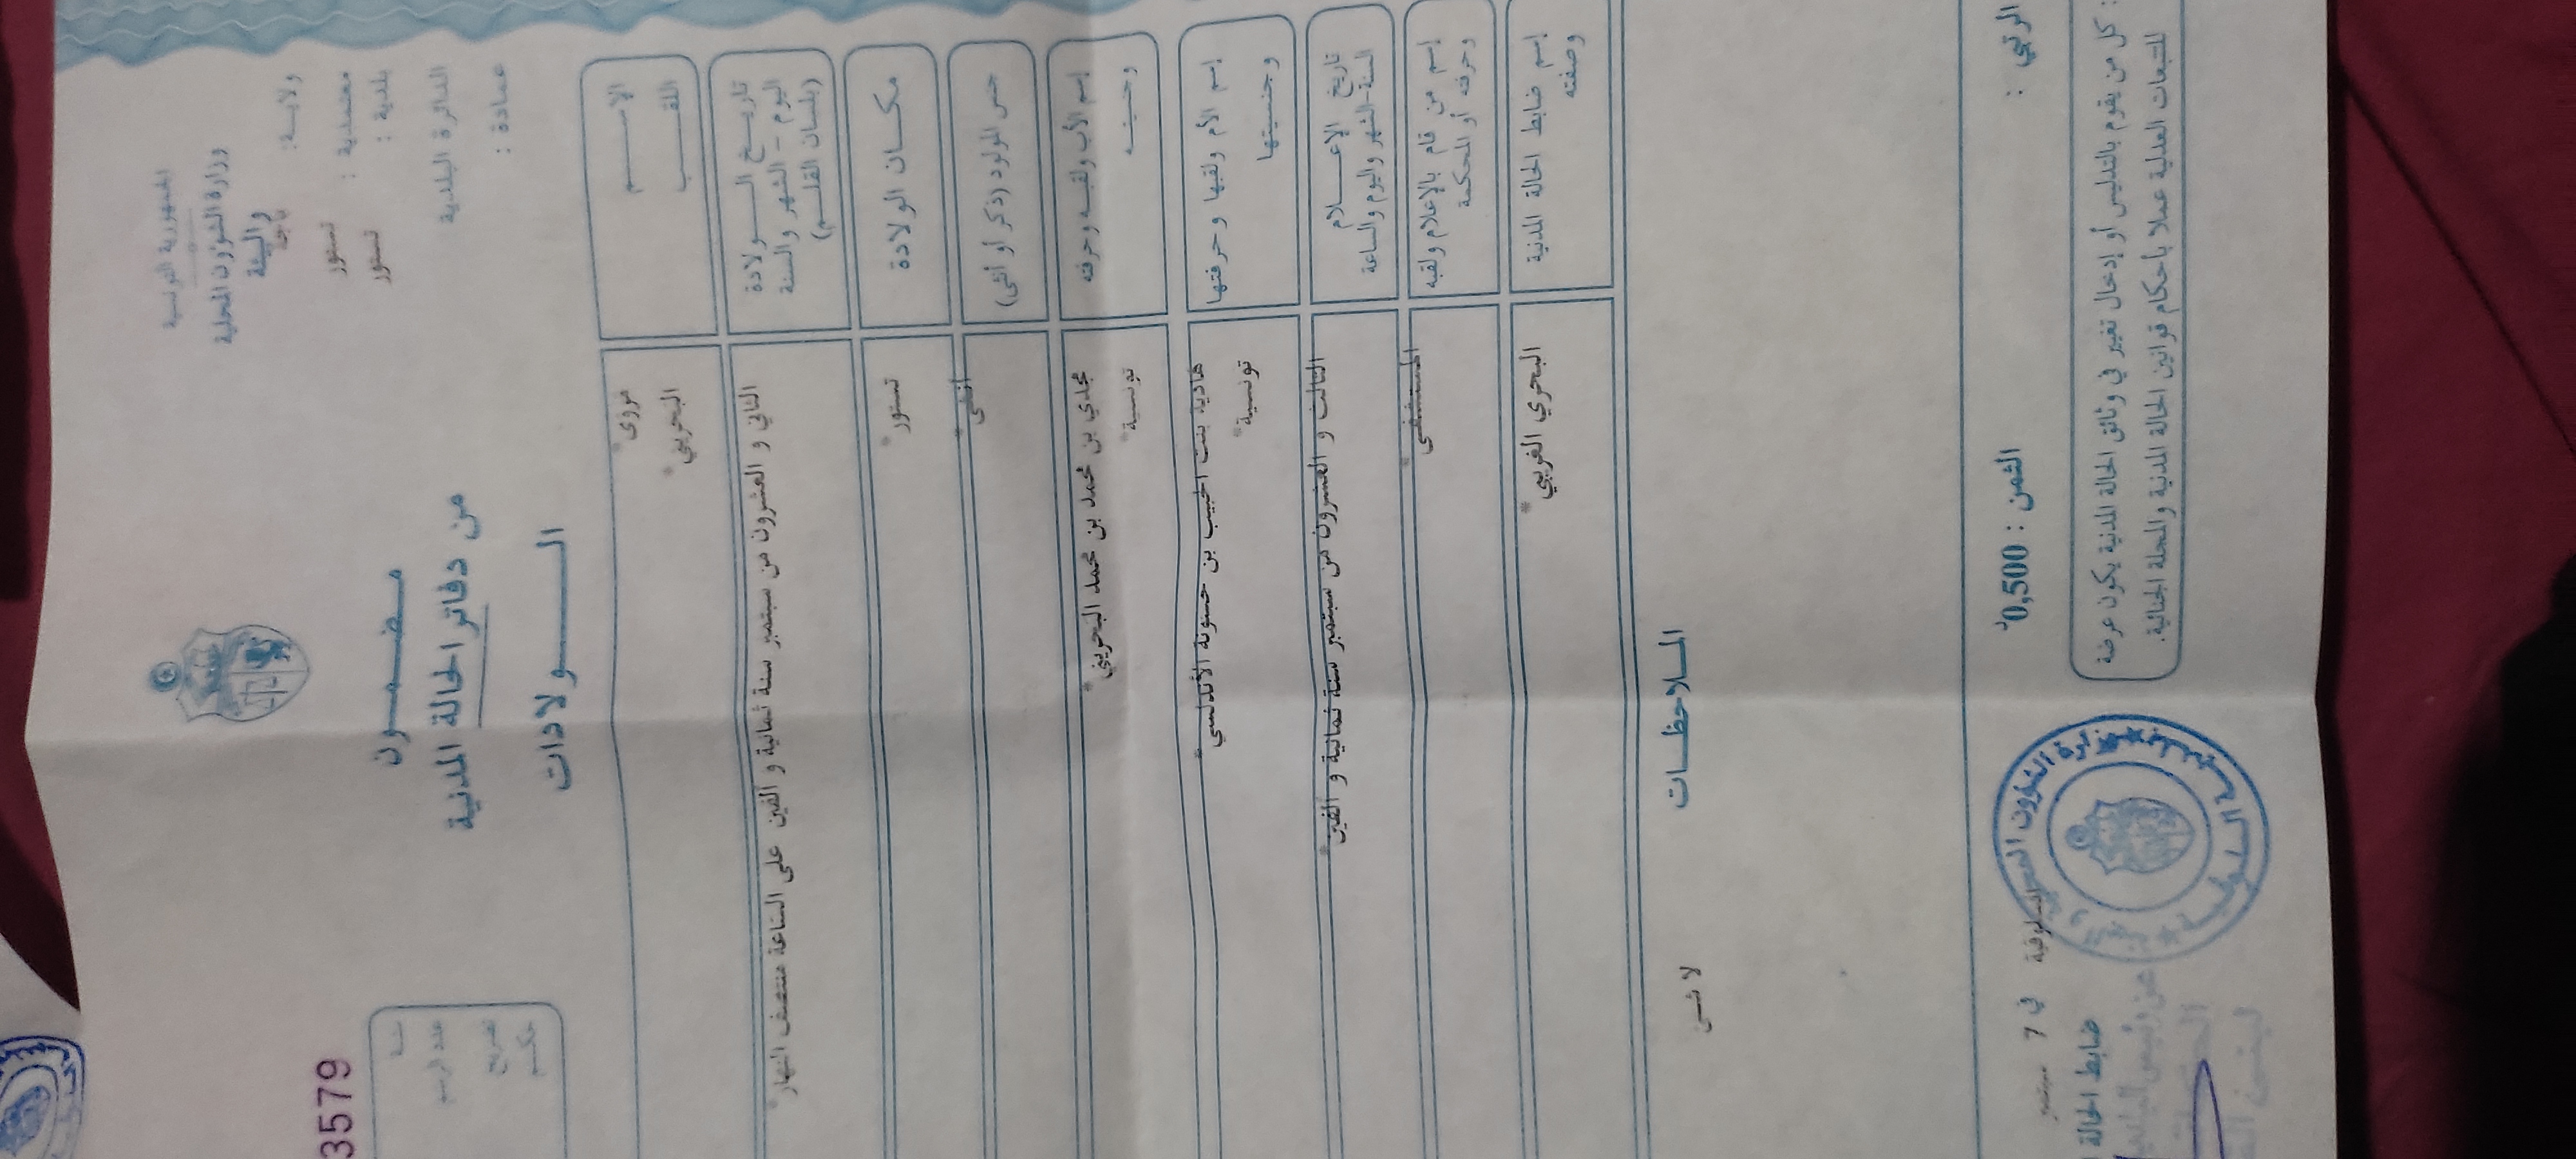 الجمهورية التونسية
وزارة الشؤون المحلية
والبيئة
ولاية: باجة
معتمدية : تستور
بلدية : تستور
الدائرة البلدية
عمادة :
مضمون
من دفاتر الحالة المدنية
الولادات
3579
سنة
عدد الرسم
تصريح
حكم
الاسم
اللقب
مروى
البحريني
تاريخ الولادة
اليوم - الشهر والسنة
(بلسان القلم)
الثاني و العشرون من سبتمبر سنة ثمانية و ألفين على الساعة منتصف النهار
مكان الولادة
تستور
جنس المولود (ذكر أو أنثى)
أنثى
إسم الأب ولقبه وحرفته
وجنسيته
مجدي بن محمد بن محمد البحريني
تونسية
إسم الأم ولقبها وحرفتها
وجنسيتها
هادية بنت الحبيب بن حسونة الأندلسي
تونسية
تاريخ الإعلام
السنة-الشهر واليوم والساعة
الثالث و العشرون من سبتمبر سنة ثمانية و ألفين
إسم من قام بالإعلام ولقبه
وحرفته أو المحكمة
المستشفى
إسم ضابط الحالة المدنية
وصفته
البحري الغريبي
الملاحظات
لا شيء
الثمن : 0,500د
السلوقية في 7 سبتمبر
ضابط الحالة
عن رئيس البلدية
: كل من يقوم بالتدليس أو إدخال تغيير في وثائق الحالة المدنية يكون عرضة
للتتبعات العدلية عملا بأحكام قوانين الحالة المدنية والمجلة الجنائية.
وزارة الشؤون المحلية